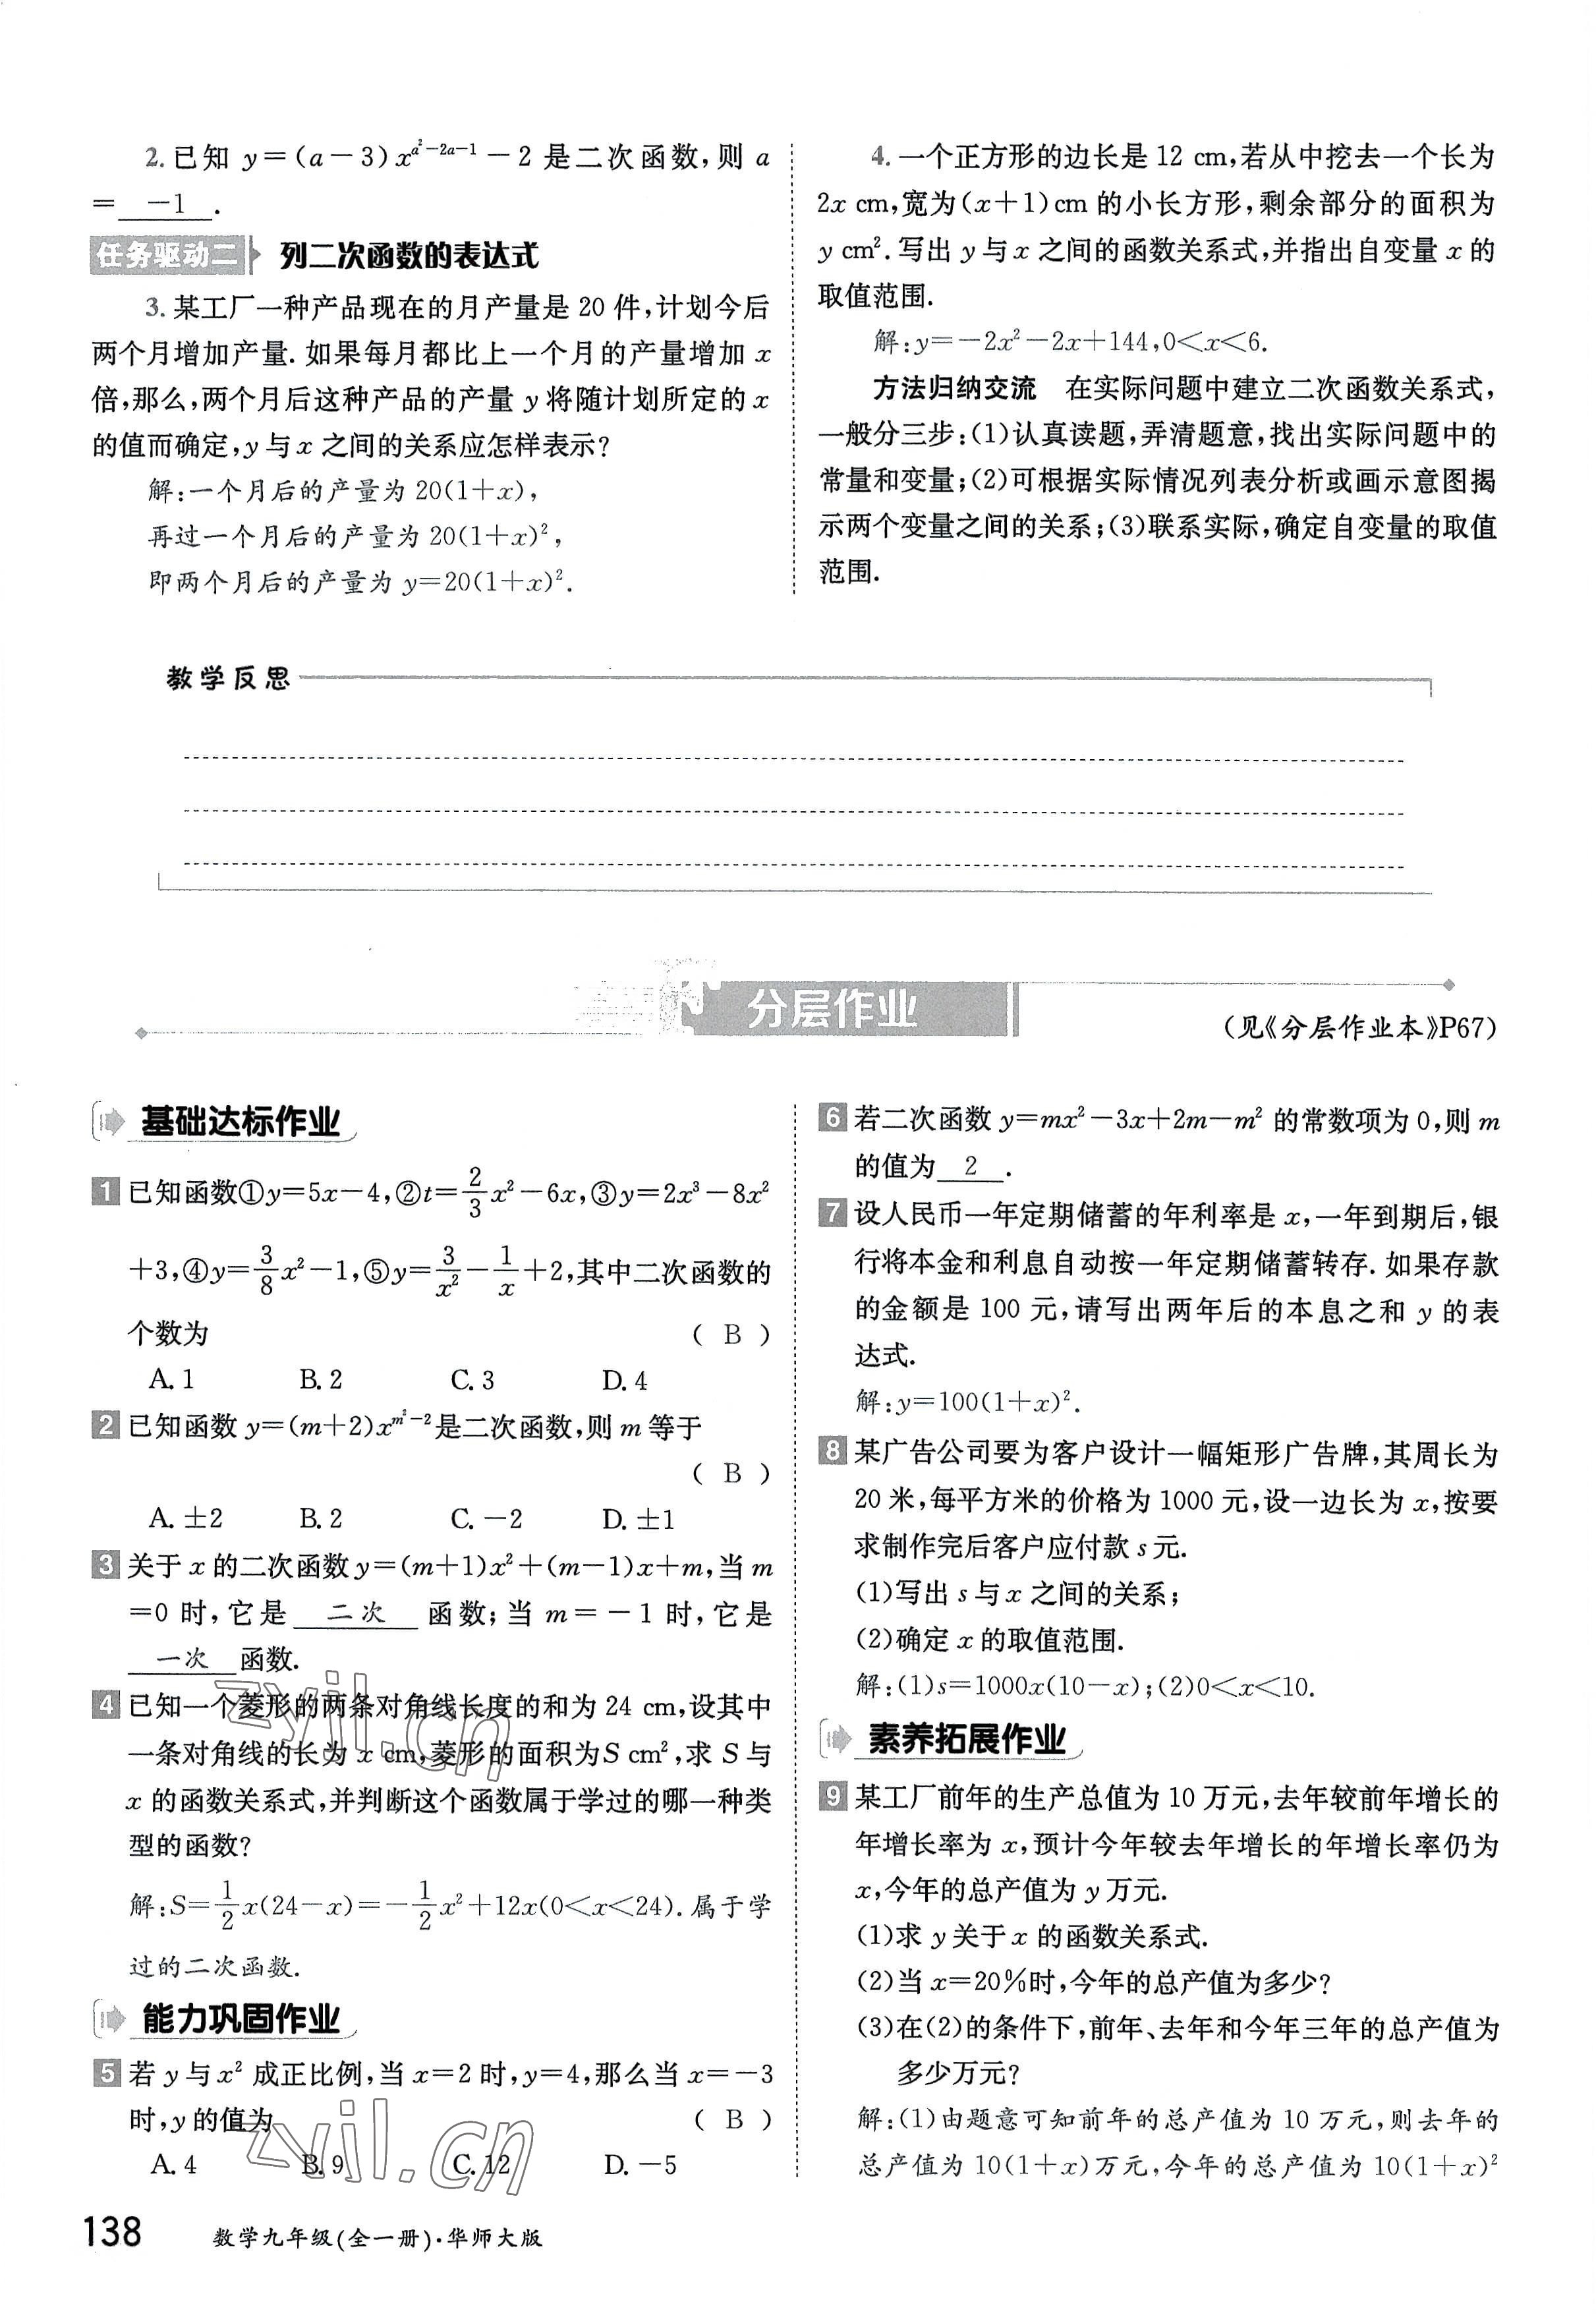 2. 已知 y=(a-3)x^{a²-2a-1}-2 是二次函数,则 a
= -1 .
任务驱动二 列二次函数的表达式
3. 某工厂一种产品现在的月产量是 20 件,计划今后
两个月增加产量. 如果每月都比上一个月的产量增加 x
倍,那么,两个月后这种产品的产量 y 将随计划所定的 x
的值而确定,y 与 x 之间的关系应怎样表示?
解:一个月后的产量为 20(1+x),
再过一个月后的产量为 20(1+x)²,
即两个月后的产量为 y=20(1+x)².
4. 一个正方形的边长是 12 cm,若从中挖去一个长为
2x cm,宽为(x+1)cm 的小长方形,剩余部分的面积为
y cm². 写出 y 与 x 之间的函数关系式,并指出自变量 x 的
取值范围.
解:y=-2x²-2x+144,0<x<6.
方法归纳交流 在实际问题中建立二次函数关系式,
一般分三步:(1)认真读题,弄清题意,找出实际问题中的
常量和变量;(2)可根据实际情况列表分析或画示意图揭
示两个变量之间的关系;(3)联系实际,确定自变量的取值
范围.
教学反思
分层作业
(见《分层作业本》P67)
基础达标作业
1 已知函数①y=5x-4,②t=\frac{2}{3}x²-6x,③y=2x³-8x²
+3,④y=\frac{3}{8}x²-1,⑤y=\frac{3}{x²}-\frac{1}{x}+2,其中二次函数的
个数为 ( B )
A. 1 B. 2 C. 3 D. 4
2 已知函数 y=(m+2)x^{m²-2}是二次函数,则 m 等于
( B )
A. ±2 B. 2 C. -2 D. ±1
3 关于 x 的二次函数 y=(m+1)x²+(m-1)x+m,当 m
=0 时,它是 二次 函数;当 m=-1 时,它是
一次 函数.
4 已知一个菱形的两条对角线长度的和为 24 cm,设其中
一条对角线的长为 x cm,菱形的面积为S cm²,求 S 与
x 的函数关系式,并判断这个函数属于学过的哪一种类
型的函数?
解:S=\frac{1}{2}x(24-x)=-\frac{1}{2}x²+12x(0<x<24). 属于学
过的二次函数.
能力巩固作业
5 若 y 与 x² 成正比例,当 x=2 时,y=4,那么当 x=-3
时,y 的值为 ( B )
A. 4 B. 9 C. 12 D. -5
6 若二次函数 y=mx²-3x+2m-m² 的常数项为 0,则 m
的值为 2 .
7 设人民币一年定期储蓄的年利率是 x,一年到期后,银
行将本金和利息自动按一年定期储蓄转存. 如果存款
的金额是 100 元,请写出两年后的本息之和 y 的表
达式.
解:y=100(1+x)².
8 某广告公司要为客户设计一幅矩形广告牌,其周长为
20 米,每平方米的价格为 1000 元,设一边长为 x,按要
求制作完后客户应付款 s 元.
(1)写出 s 与 x 之间的关系;
(2)确定 x 的取值范围.
解:(1)s=1000x(10-x);(2)0<x<10.
素养拓展作业
9 某工厂前年的生产总值为 10 万元,去年较前年增长的
年增长率为 x,预计今年较去年增长的年增长率仍为
x,今年的总产值为 y 万元.
(1)求 y 关于 x 的函数关系式.
(2)当 x=20%时,今年的总产值为多少?
(3)在(2)的条件下,前年、去年和今年三年的总产值为
多少万元?
解:(1)由题意可知前年的总产值为 10 万元,则去年的
总产值为 10(1+x)万元,今年的总产值为 10(1+x)²
zyjl.cn
zyjl.cn
138 数学九年级(全一册)·华师大版